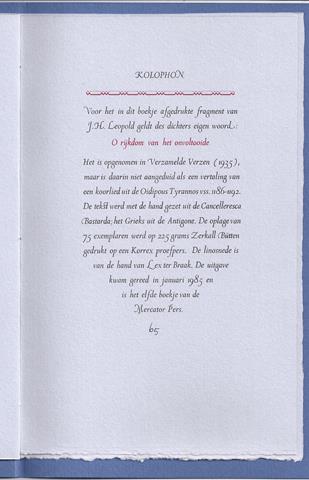 KOLOPHON
Voor het in dit boekje afgedrukte fragment van
J.H. Leopold geldt des dichters eigen woord:
O rijkdom van het onvoltooide
Het is opgenomen in Verzamelde Verzen (1935),
maar is daarin niet aangeduid als een vertaling van
een koorlied uit de Oidipous Tyrannos vss. 1186-1192.
De tekst werd met de hand gezet uit de Cancelleresca
Bastarda; het Grieks uit de Antigone. De oplage van
75 exemplaren werd op 225 grams Zerkall Bütten
gedrukt op een Korrex proefpers. De linosnede is
van de hand van Lex ter Braak. De uitgave
kwam gereed in januari 1985 en
is het elfde boekje van de
Mercator Pers.
65